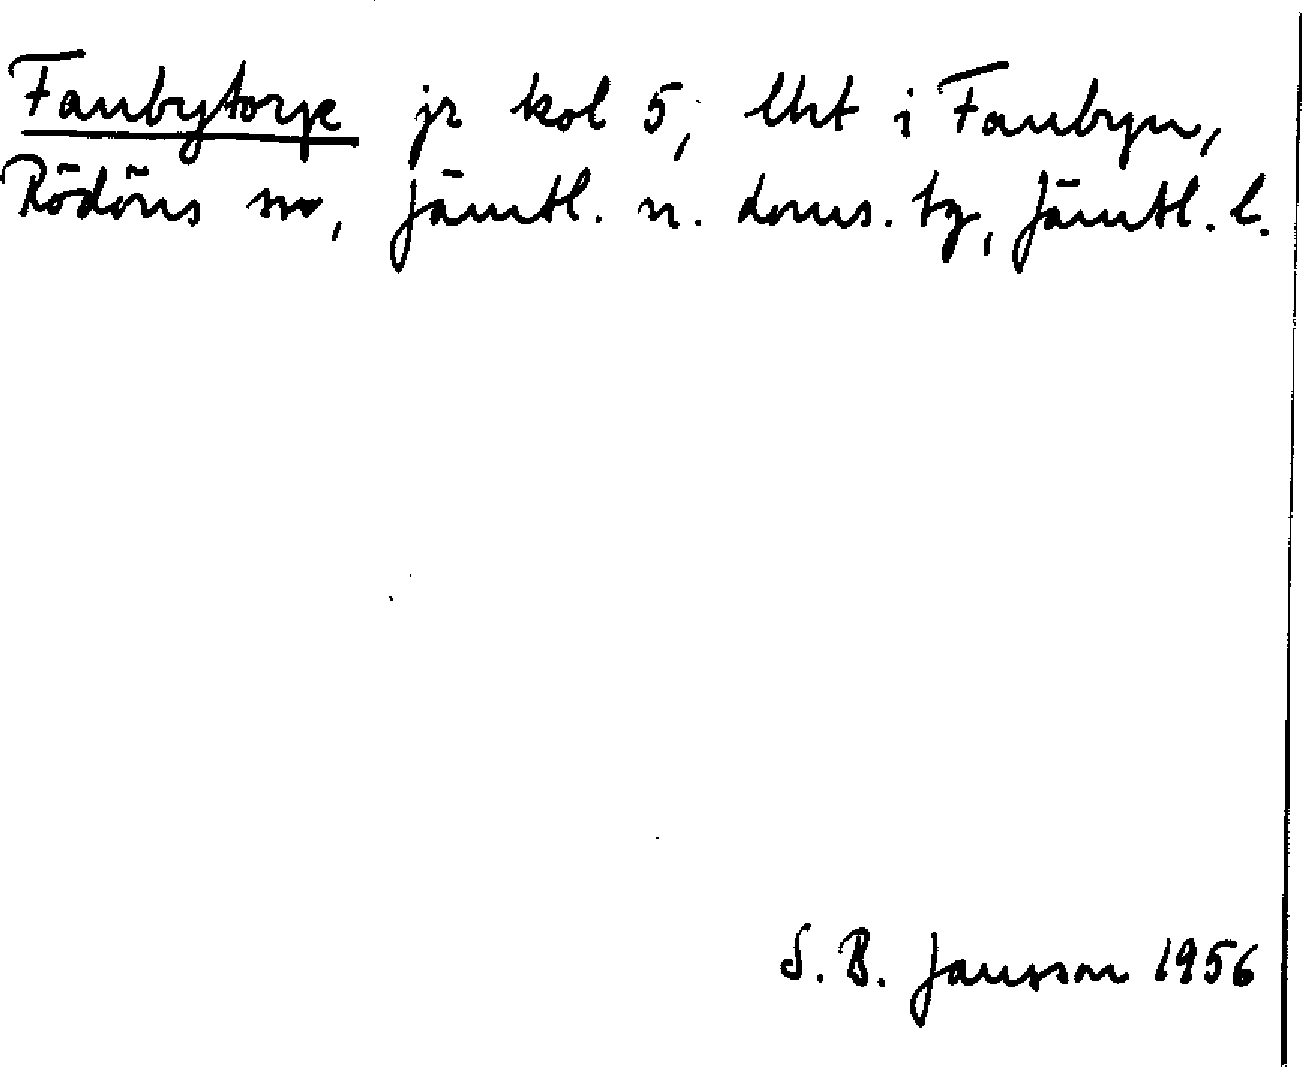 Fanbytorp jr kol 5, lht i Fanbyn,
Rödöns sn, Jämtl. n. doms. tg, Jämtl. l.
S. B. Jansson 1956